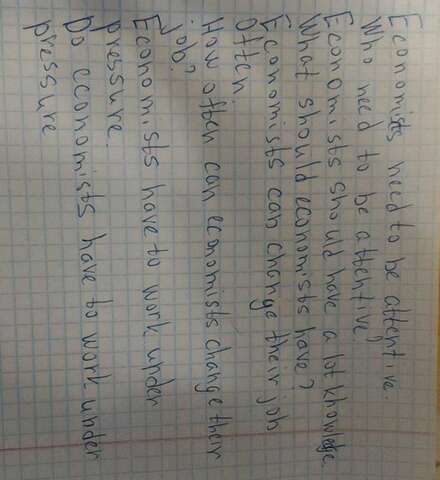 Economists need to be attentive.
Who need to be attentive?
Economists should have a lot knowledge
What should economists have?
Economists can change their job
Often
How often can economists change their
job?
Economists have to work under
pressure.
Do economists have to work under
pressure